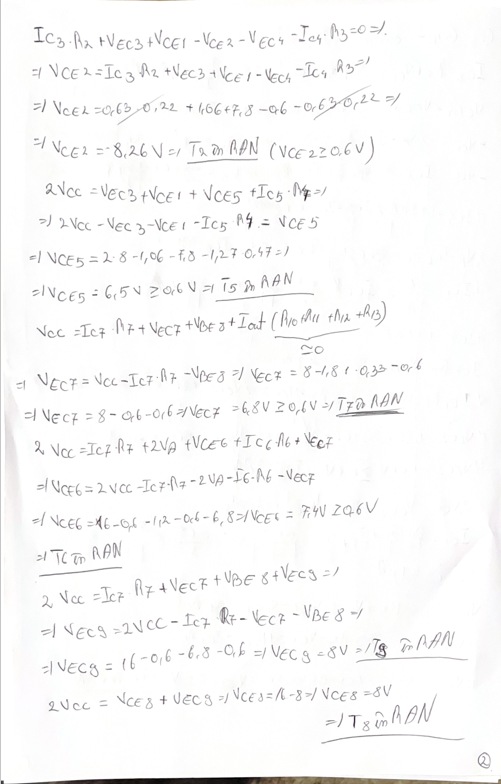 IC3·R2 + VEC3 + VCE1 - VCE2 - VEC4 - IC4·R3 = 0 =>
=> VCE2 = IC3 R2 + VEC3 + VCE1 - VEC4 - IC4 R3 =>
=> VCE2 = 0,63·0,22 + 1,06 + 7,8 - 0,6 - 0,63·0,22 =>
=> VCE2 = 8,26 V => T2 în RAN (VCE2 ≥ 0,6 V)
2Vcc = VEC3 + VCE1 + VCE5 + IC5·R4 =>
=> 2Vcc - VEC3 - VCE1 - IC5 R4 = VCE5
=> VCE5 = 2·8 - 1,06 - 7,8 - 1,27·0,47 =>
=> VCE5 = 6,5 V ≥ 0,6 V => T5 în RAN
Vcc = IC7·R7 + VEC7 + VBE8 + Iout (R10 + R11 + R12 + R13)
≃0
=> VEC7 = Vcc - IC7·R7 - VBE8 => VEC7 = 8 - 1,81·0,33 - 0,6
=> VEC7 = 8 - 0,6 - 0,6 => VEC7 = 6,8 V ≥ 0,6 V => T7 în RAN
2 Vcc = IC7·R7 + 2VA + VCE6 + IC6·R6 + VEC7
=> VCE6 = 2 Vcc - IC7·R7 - 2VA - I6·R6 - VEC7
=> VCE6 = 16 - 0,6 - 1,2 - 0,6 - 6,8 => VCE6 = 7,4V ≥ 0,6 V
=> T6 în RAN
2 Vcc = IC7 R7 + VEC7 + VBE8 + VEC9 =>
=> VEC9 = 2VCC - IC7 R7 - VEC7 - VBE8 =>
=> VEC9 = 16 - 0,6 - 6,8 - 0,6 => VEC9 = 8V => T9 în RAN
2Vcc = VCE8 + VEC9 => VCE8 = 16 - 8 => VCE8 = 8V
=> T8 în RAN
2